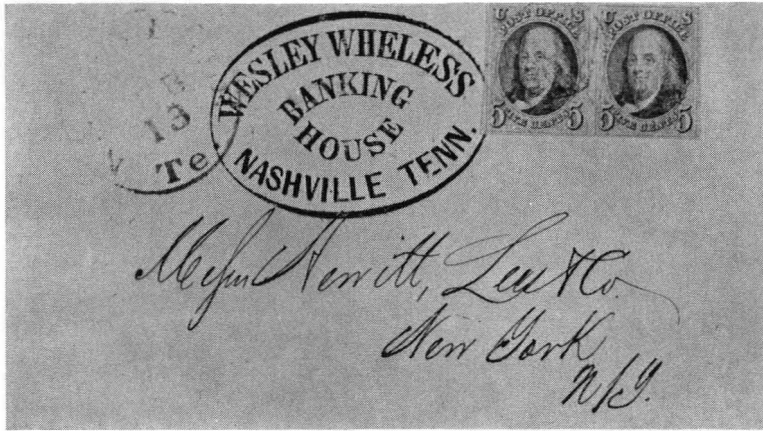 13
Te
WESLEY WHELESS
BANKING
HOUSE
NASHVILLE TENN.
U S
POST OFFICE
5 FIVE CENTS 5
U S
POST OFFICE
5 FIVE CENTS 5
Messrs Hewitt, Lee & Co.
New York
N/Y.